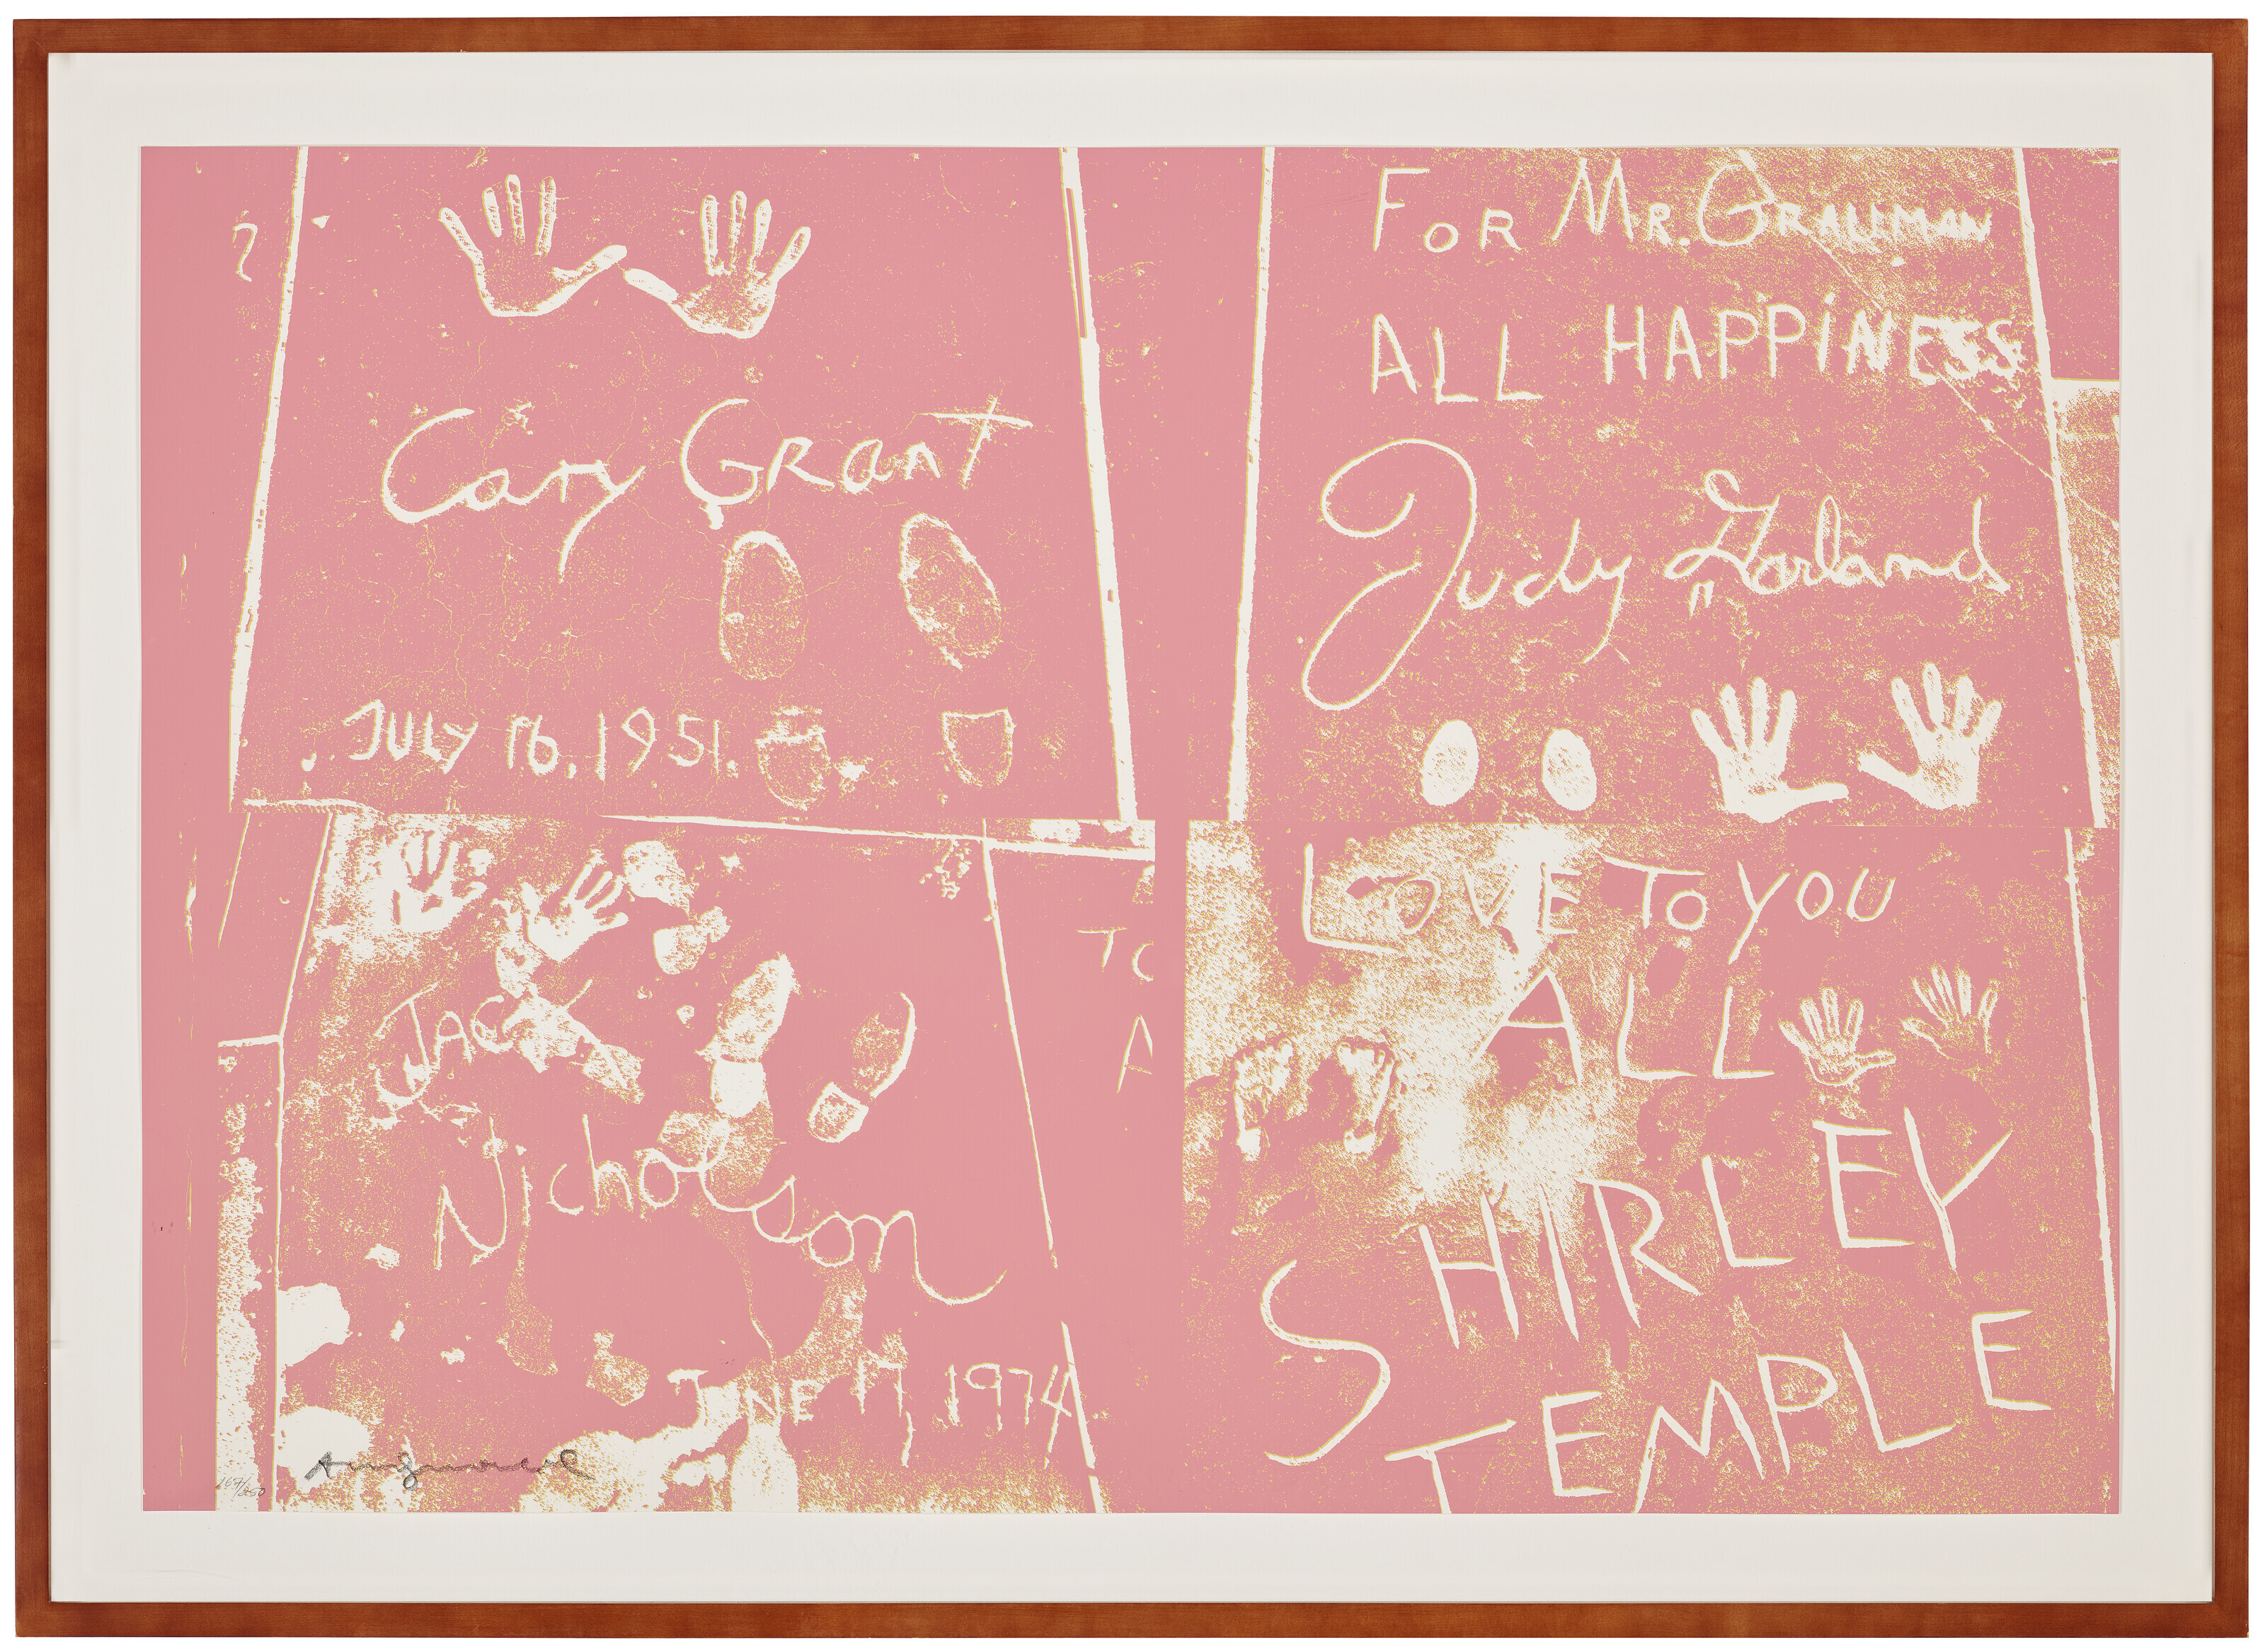 Cary Grant
JULY 16.1951.
FOR MR. GRAUMAN
ALL HAPPINESS
Judy Garland
JACK
Nicholson
JUNE 17, 1974
TO
A
LOVE TO YOU
ALL
SHIRLEY
TEMPLE